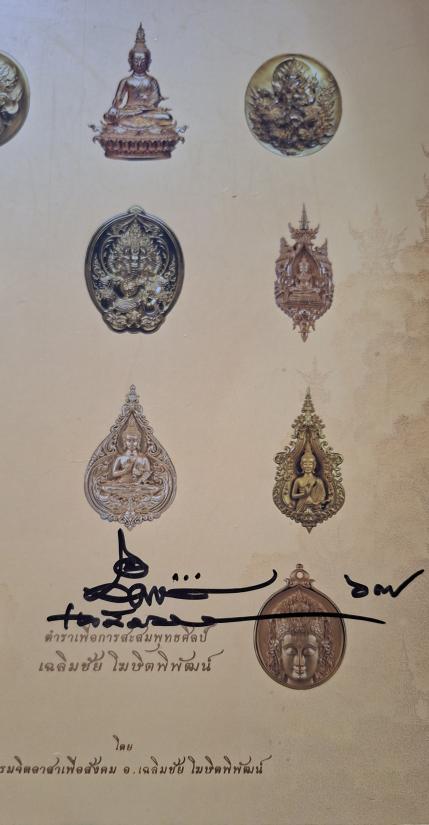 ๖๗
ตำราเพื่อการสะสมพุทธศิลป์
เฉลิมชัย โฆษิตพิพัฒน์
โดย
รมจิตอาสาเพื่อสังคม อ.เฉลิมชัย โฆษิตพิพัฒน์